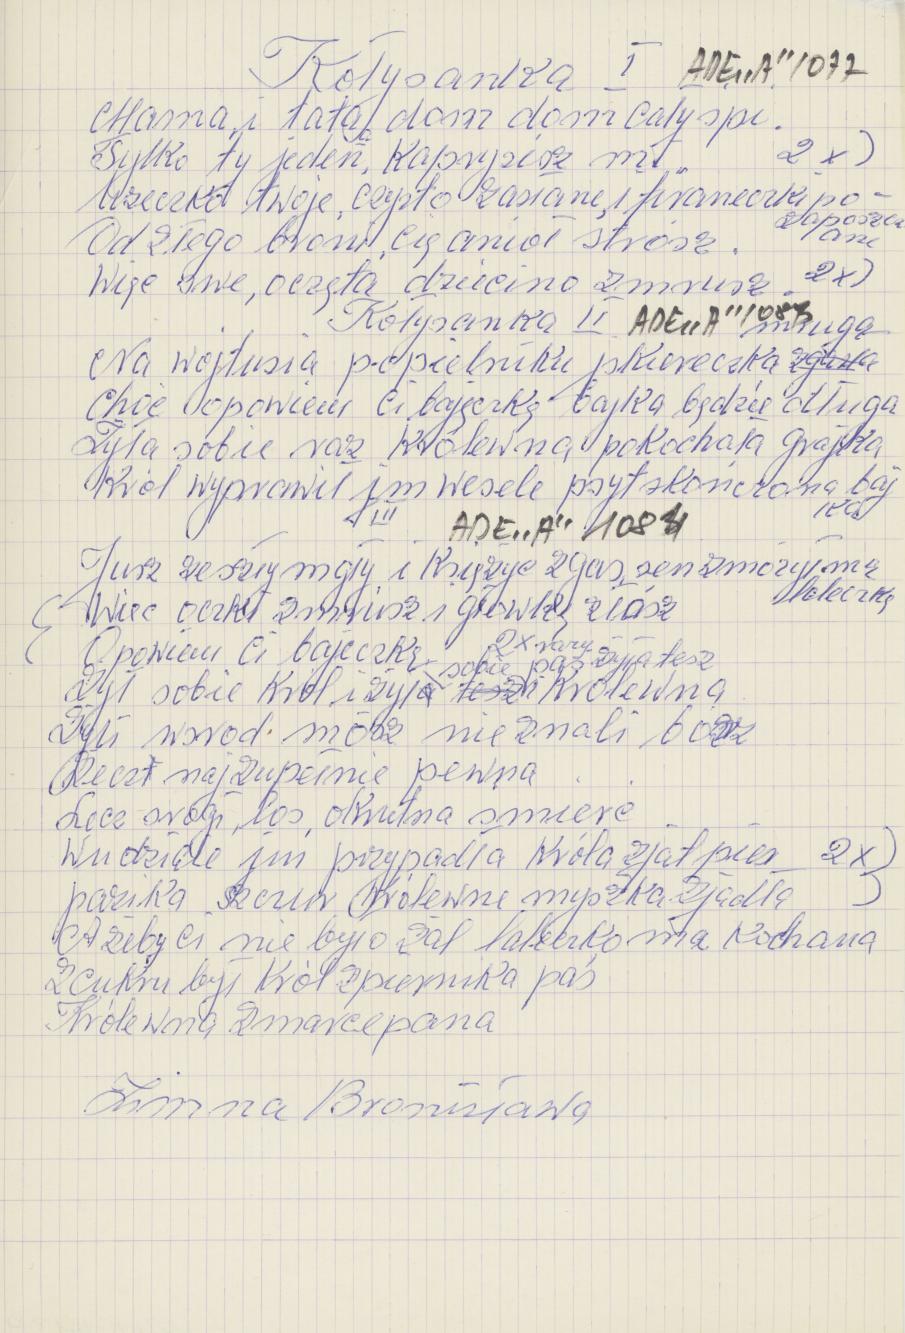 Kołysanka I ADE „A" 1077
Mama i tata, dom dom cały śpi.
Tylko ty jeden, kaprysisz mi 2x)
Łóżeczko twoje, czysto zasłane, i firaneczki po-
zapuszczane
Od złego broni, cię anioł strósz.
Więc swe, oczęta dziecino zmrusz. 2x)
Kołysanka II ADE „A" 1083
mruga
Na wojtusia popielniku iskiereczka
Choć opowiem Ci bajeczkę bajka będzie długa
Żyła sobie raz królewna pokochała grajka
Król wyprawił jm wesele psyt skończona baj
ka
III ADE „A" 1084
Jusz zeszły mgły i księżyc zgas, sen zmorzył mą
laleczkę
Więc oczki zmrusz i główkę złósz
Opowiem Ci bajeczkę 2x razy
sobie paź żyła tesz
Żył sobie król i żył tesz i królewna
Żyli wsrod. mósz nie znali bósz
Rzecz najzupełnie pewna
Lecz srogi, los, okrutna smierć
Wudziale jm przypadła króla zjat pies 2x)
pazika szczur królewne myszka zjadła
Ażeby Ci nie było żal laleczko ma kochana
Zcukru był król zpiernika paś
Królewna zmarcepana
Zimna Bronisława